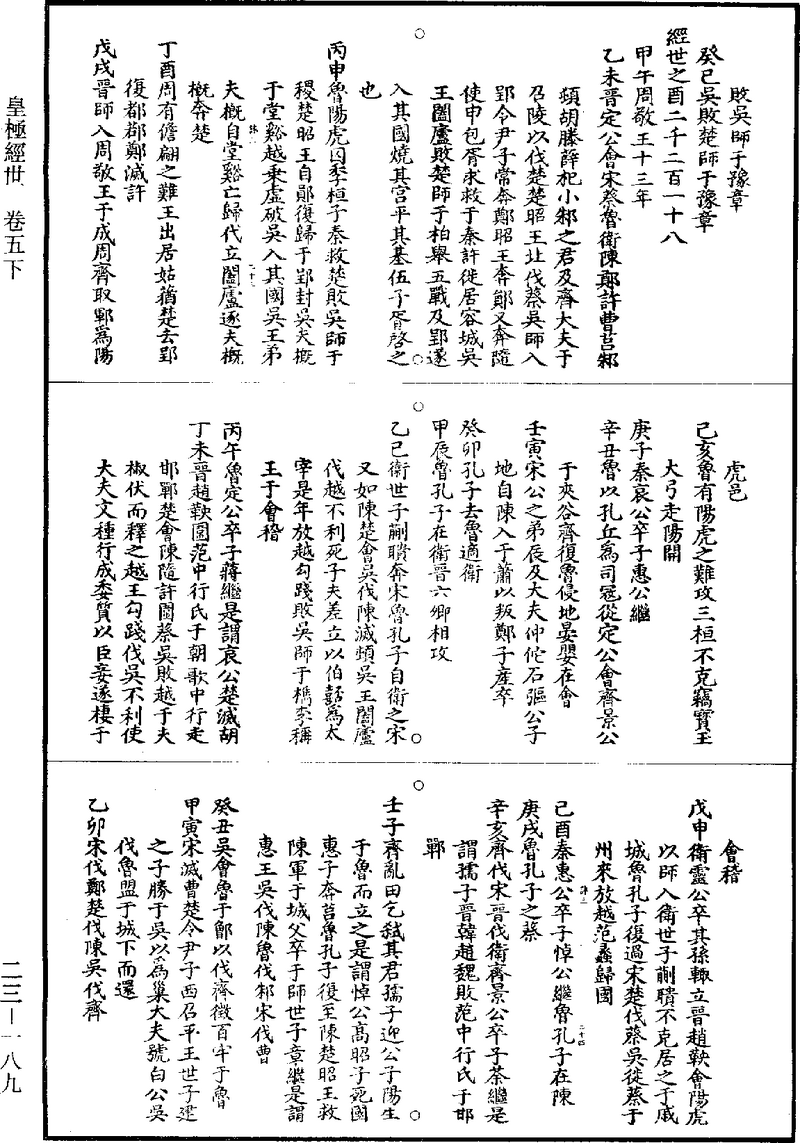 皇極經世　卷五下
二三—一八九
敗吳師于豫章
癸巳吳敗楚師于豫章
經世之酉二千二百一十八
甲午周敬王十三年
乙未晉定公會宋蔡魯衛陳鄭許曹莒邾
頓胡滕薛杞小邾之君及齊大夫于
召陵以伐楚楚昭王北伐蔡吳師入
郢令尹子常奔鄭昭王奔鄖又奔隨
使申包胥求救于秦許徙居容城吳
王闔廬敗楚師于柏舉五戰及郢遂
入其國燒其宮平其墓伍子胥啓之
也
丙申魯陽虎囚季桓子秦救楚敗吳師于
稷楚昭王自鄖復歸于郢封吳夫概
于堂谿越乘虛破吳入其國吳王弟
夫概自堂谿亡歸代立闔廬逐夫概
概奔楚
丁酉周有儋翩之難王出居姑蕕楚去郢
復都鄀鄭滅許
戊戌晉師入周敬王于成周齊取鄆爲陽
虎邑
己亥魯有陽虎之難攻三桓不克竊寶玉
大弓走陽關
庚子秦哀公卒子惠公繼
辛丑魯以孔丘爲司寇從定公會齊景公
于夾谷齊復魯侵地晏嬰在會
壬寅宋公之弟辰及大夫仲佗石彄公子
地自陳入于蕭以叛鄭子產卒
癸卯孔子去魯適衛
甲辰魯孔子在衛晉六卿相攻
乙巳衛世子蒯聵奔宋魯孔子自衛之宋
又如陳楚會吳伐陳滅頓吳王闔廬
伐越不利死子夫差立以伯嚭爲太
宰是年放越勾踐敗吳師于檇李稱
王于會稽
丙午魯定公卒子蔣繼是謂哀公楚滅胡
丁未晉趙鞅圍范中行氏于朝歌中行走
邯鄲楚會陳隨許圍蔡吳敗越于夫
椒伏而釋之越王勾踐伐吳不利使
大夫文種行成委質以臣妾遂棲于
會稽
戊申衛靈公卒其孫輒立晉趙鞅會陽虎
以師入衛世子蒯聵不克居之于戚
城魯孔子復過宋楚伐蔡吳徙蔡于
州來放越范蠡歸國
己酉秦惠公卒子悼公繼魯孔子在陳
庚戌魯孔子之蔡
辛亥齊伐宋晉伐衛齊景公卒子荼繼是
謂孺子晉韓趙魏敗范中行氏于邯
鄲
壬子齊亂田乞弒其君孺子迎公子陽生
于魯而立之是謂悼公高昭子死國
惠子奔莒魯孔子復至陳楚昭王救
陳軍于城父卒于師世子章繼是謂
惠王吳伐陳魯伐邾宋伐曹
癸丑吳會魯于鄫以伐齊徵百牢于魯
甲寅宋滅曹楚令尹子西召平王世子建
之子勝于吳以爲巢大夫號白公吳
伐魯盟于城下而還
乙卯宋伐鄭楚伐陳吳伐齊